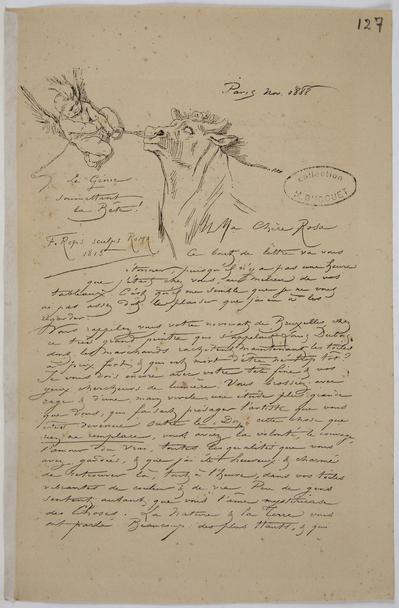 127
Paris Nov. 1888
Le Génie
soumettant
la Bête!
collection
F. Rops sculps Roma
1815
Ma Chère Rose
Ce bout de lettre va vous
étonner, puisqu'il n'y a pas une heure
que j'étais chez vous, au milieu de vos
tableaux. C'est qu'il me semble que je ne vous
ai pas assez dit le plaisir que j'avais à les
regarder.
Vous rappelez vous votre de Bruxelles chez
ce très grand peintre qui s'appelait Louis Dubois,
dont les marchands achètent maintenant les toiles
à prix fort, & qui est mort d'être né trop tôt?
Je vous vois encore avec votre tête fine & vos
yeux chercheurs de lumière. Vous brossiez avec
rage & d'une main virile, une étude plus grande
que vous, qui faisait présager l'artiste que vous
êtes devenue. Outre le Don, cette chose que
rien ne remplace, vous aviez la volonté, le courage
l'amour du vrai, toutes les qualités que vous
avez gardées, & que j'ai été heureux & charmé
de retrouver là, tout à l'heure, dans vos toiles
vibrantes de couleur & de vie. Peu de gens
sentent autant que vous l'âme mystérieuse
des Choses. La Nature & la Terre vous
ont parlé Beaucoup des plus Hauts, & qui